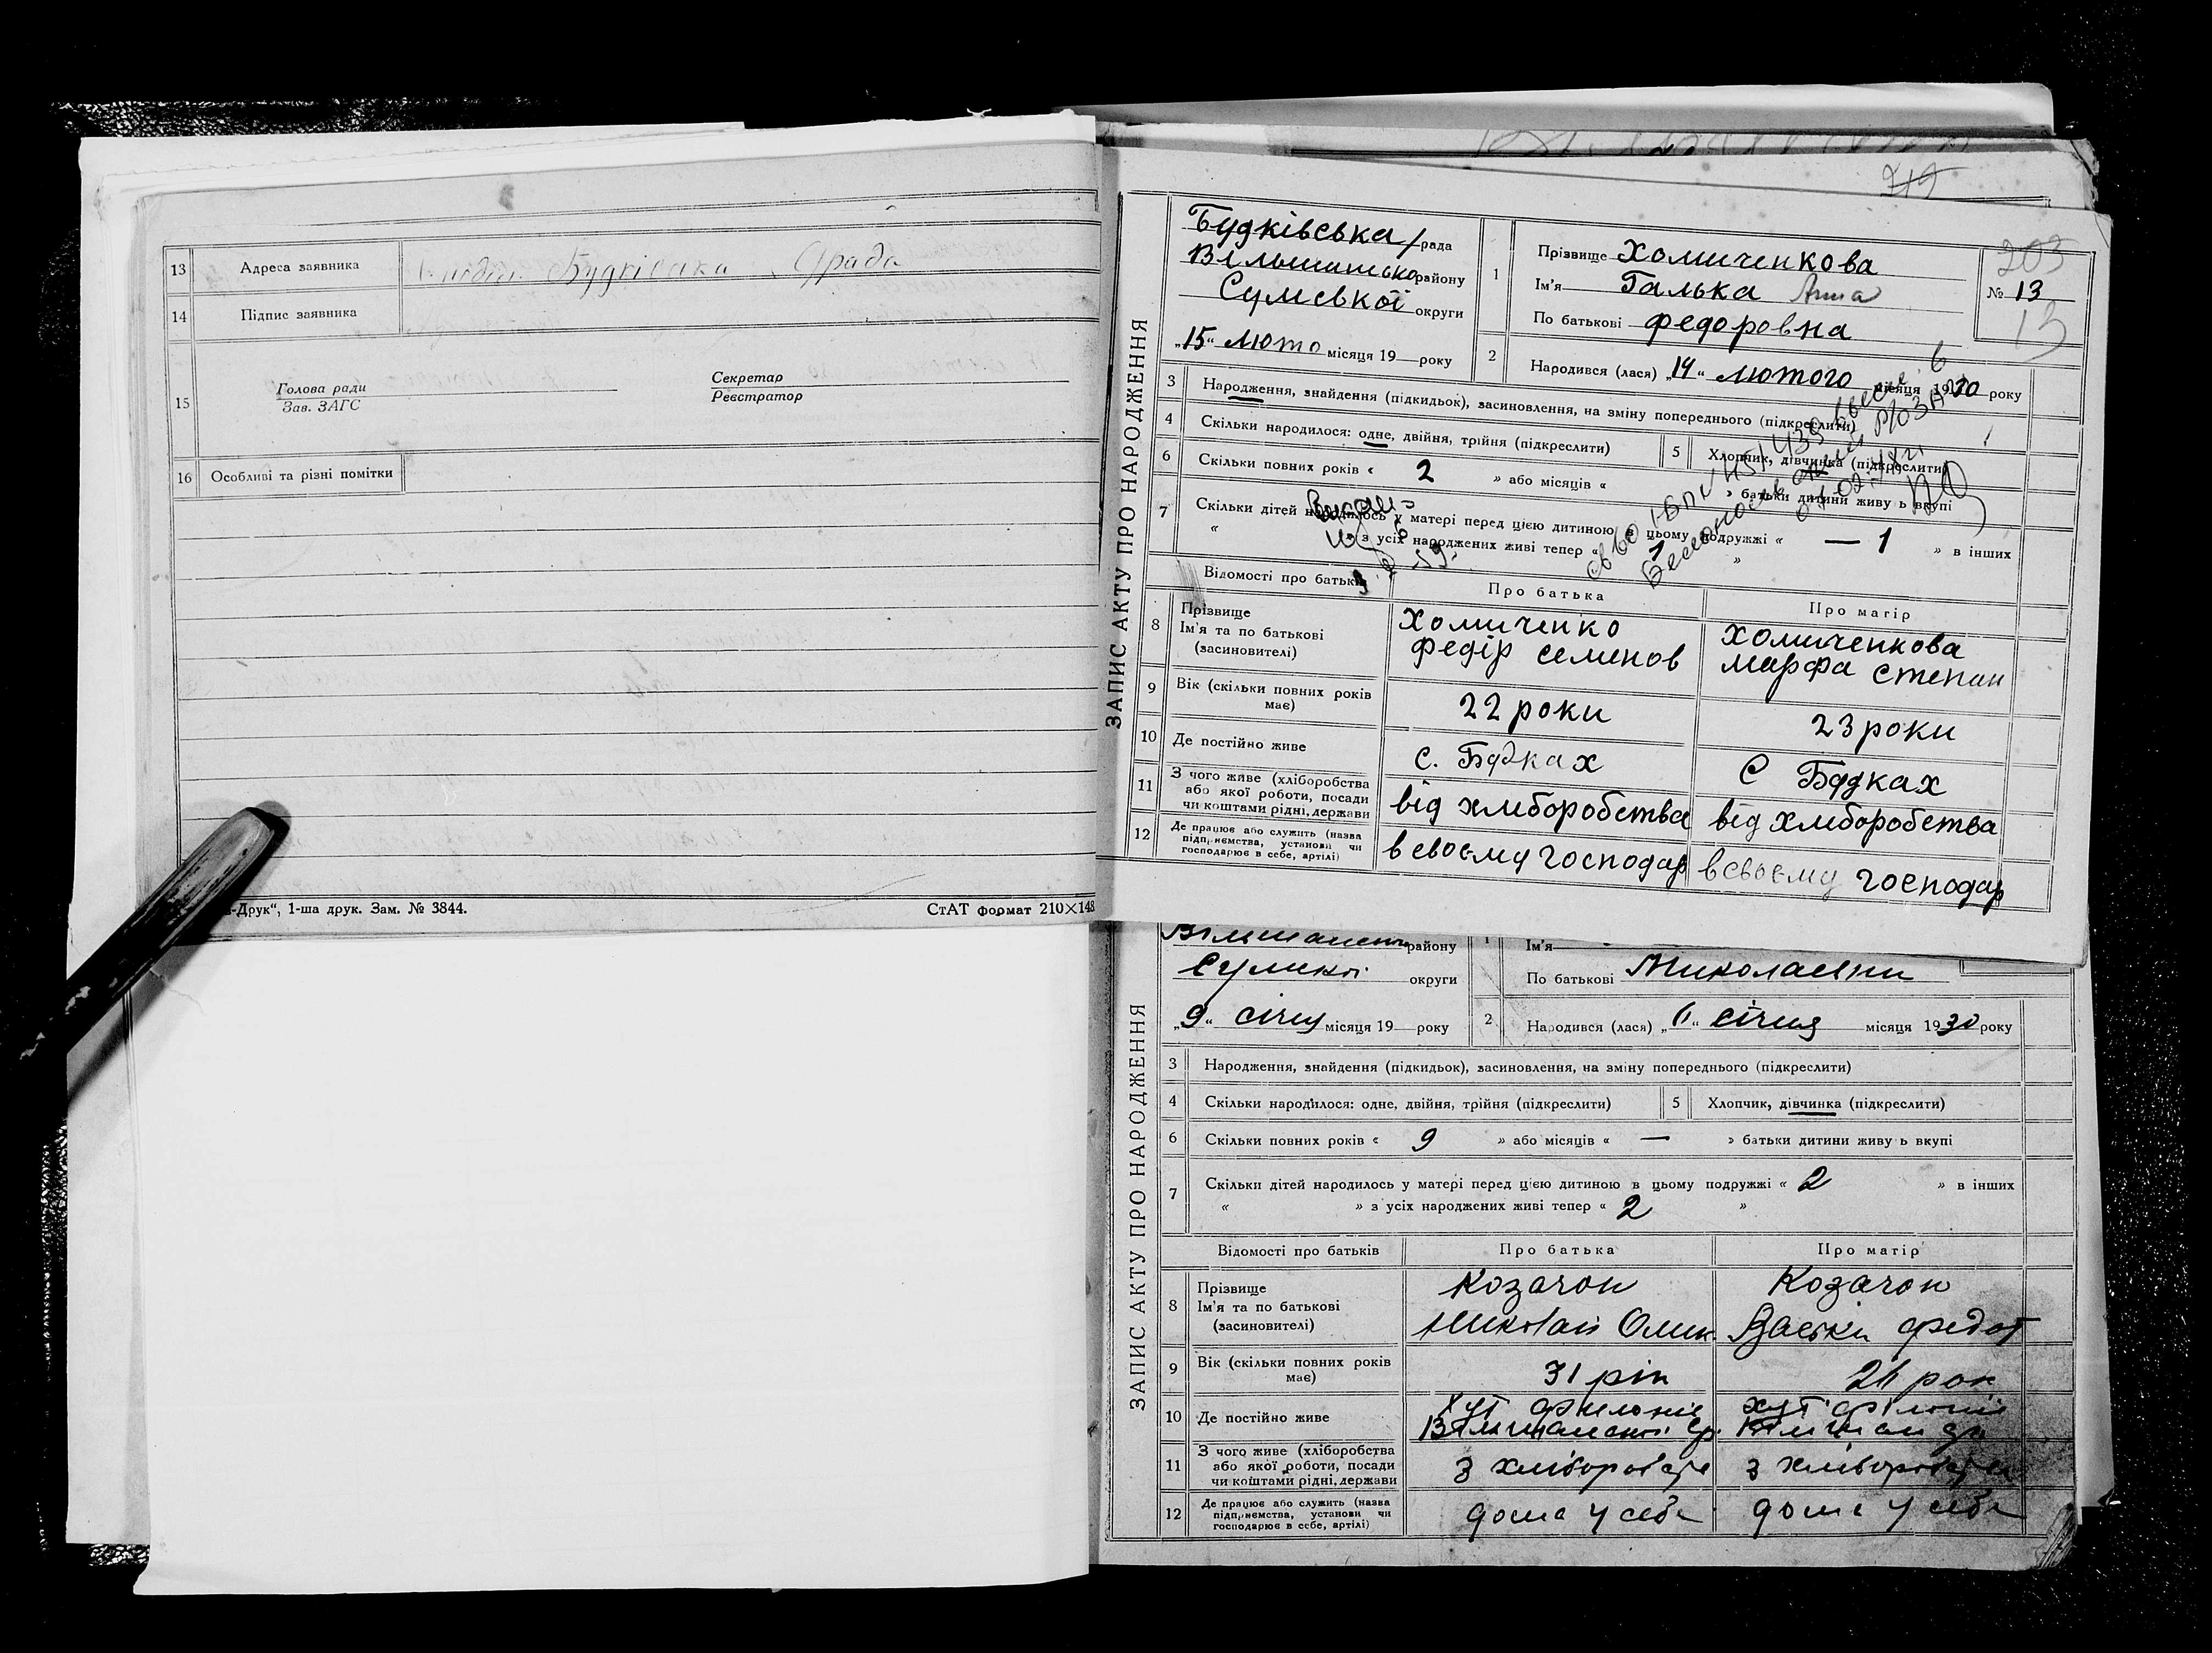 13 Адреса заявника Будківська с/рада
14 Підпис заявника
15 Голова ради Секретар
Зав. ЗАГС Реєстратор
16 Особливі та різні помітки
-Друк“, 1-ша друк. Зам. № 3844. СтАТ формат 210×148
ЗАПИС АКТУ ПРО НАРОДЖЕННЯ
Будківська/рада
району
Сумської округи
„15“ люто місяця 19 року
1 Прізвище Хомиченкова
Ім'я Галька Анна
По батькові Федоровна
203
№ 13
13
2 Народився (лася) „14“ лютого місяця 1930 року
3 Народження, знайдення (підкидьок), засиновлення, на зміну попереднього (підкреслити)
4 Скільки народилося: одне, двійня, трійня (підкреслити) 5 Хлопчик, дівчинка (підкреслити)
6 Скільки повних років « 2 » або місяців « » батьки дитини живу ь вкупі
7 Скільки дітей народилось у матері перед цією дитиною в цьому подружжі « — 1 » в інших
« » з усіх народжених живі тепер « 1 »
Відомості про батьків Про батька Про матір
8 Прізвище Хомиченко Хомиченкова
Ім'я та по батькові Федір Семенов Марфа Степан
(засиновителі)
9 Вік (скільки повних років має) 22 роки 23 роки
10 Де постійно живе С. Будках С Будках
11 З чого живе (хліборобства або якої роботи, посади чи коштами рідні, держави від хліборобства від хліборобства
12 Де працює або служить (назва підприємства, установи чи господарює в себе, артілі) в своєму господар в своєму господар
ЗАПИС АКТУ ПРО НАРОДЖЕННЯ
району
Сумської округи
„9“ січня місяця 19 року
1 Ім'я
По батькові Миколаевни
2 Народився (лася) „6“ січня місяця 1930 року
3 Народження, знайдення (підкидьок), засиновлення, на зміну попереднього (підкреслити)
4 Скільки народилося: одне, двійня, трійня (підкреслити) 5 Хлопчик, дівчинка (підкреслити)
6 Скільки повних років « 9 » або місяців « — » батьки дитини живу ь вкупі
7 Скільки дітей народилось у матері перед цією дитиною в цьому подружжі « 2 » в інших
« » з усіх народжених живі тепер « 2 »
Відомості про батьків Про батька Про матір
8 Прізвище Козачок Козачок
Ім'я та по батькові Николай Федот
(засиновителі)
9 Вік (скільки повних років має) 31 рік 26 рок
10 Де постійно живе хут хут
11 З чого живе (хліборобства або якої роботи, посади чи коштами рідні, держави з з
12 Де працює або служить (назва підприємства, установи чи господарює в себе, артілі) дома у себе дома у себе